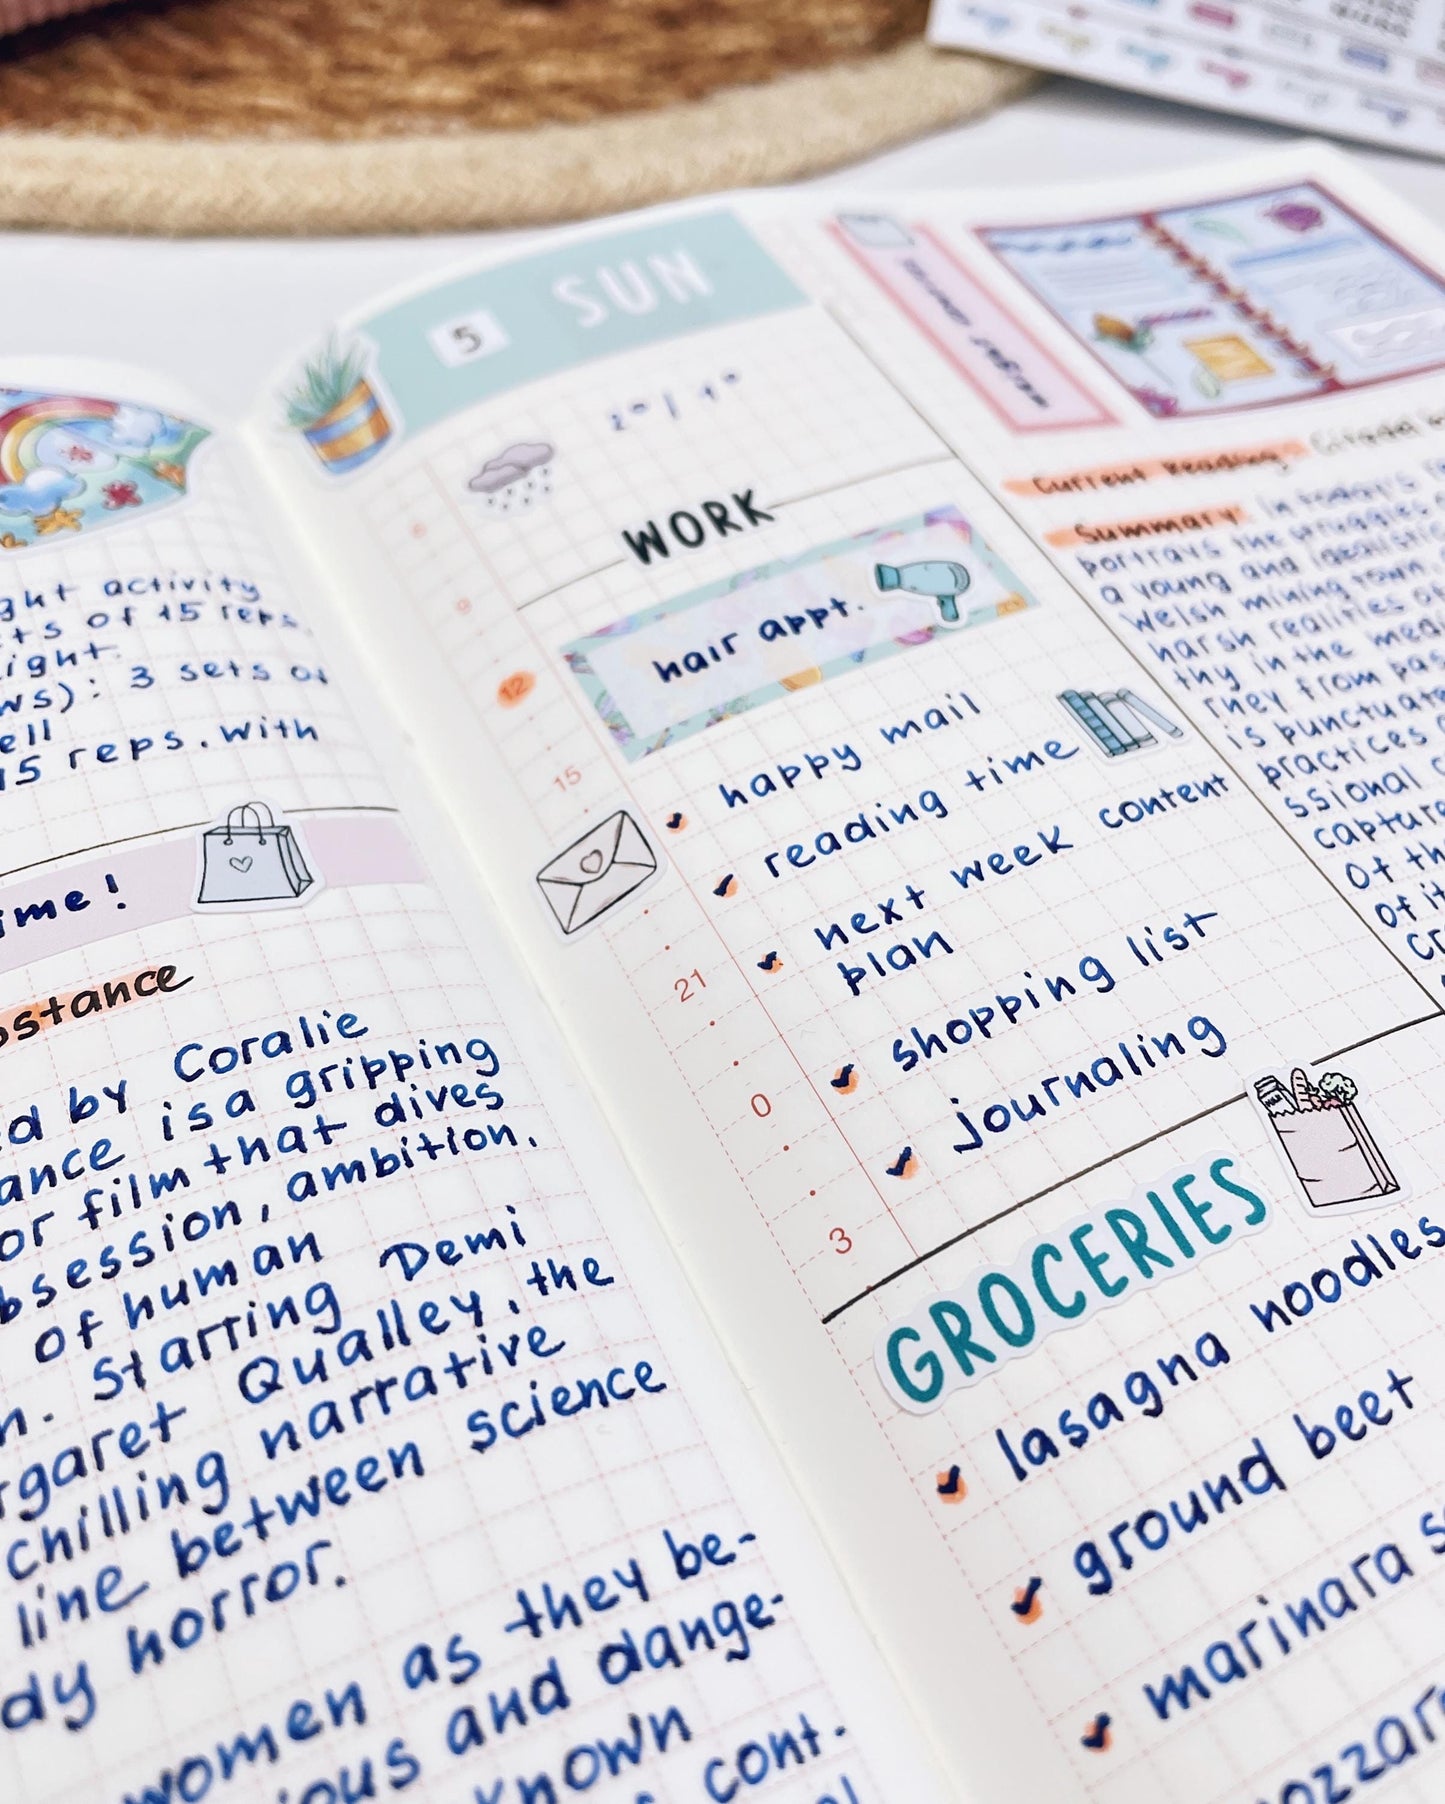 ght activity
ts of 15 reps.
ight.
ws): 3 sets of
ell
15 reps. with
ime!
bstance
ed by Coralie
ance is a gripping
or film that dives
bsession, ambition,
of human
n. Starring Demi
rgaret Qualley, the
chilling narrative
line between science
dy horror.
women as they be-
ious and dange-
known
cont.
5 SUN
WORK
hair appt.
happy mail
reading time
next week content
plan
shopping list
journaling
9
12
15
21
0
3
GROCERIES
lasagna noodles
ground beet
marinara s
ozzar
Current Reading: Citadel
Summary: In today's
portrays the struggles
a young and idealistic
Welsh mining town.
harsh realities
thy in the med
rney from pas
is punctuat
practices
ssional
capture
of th
of it
cr